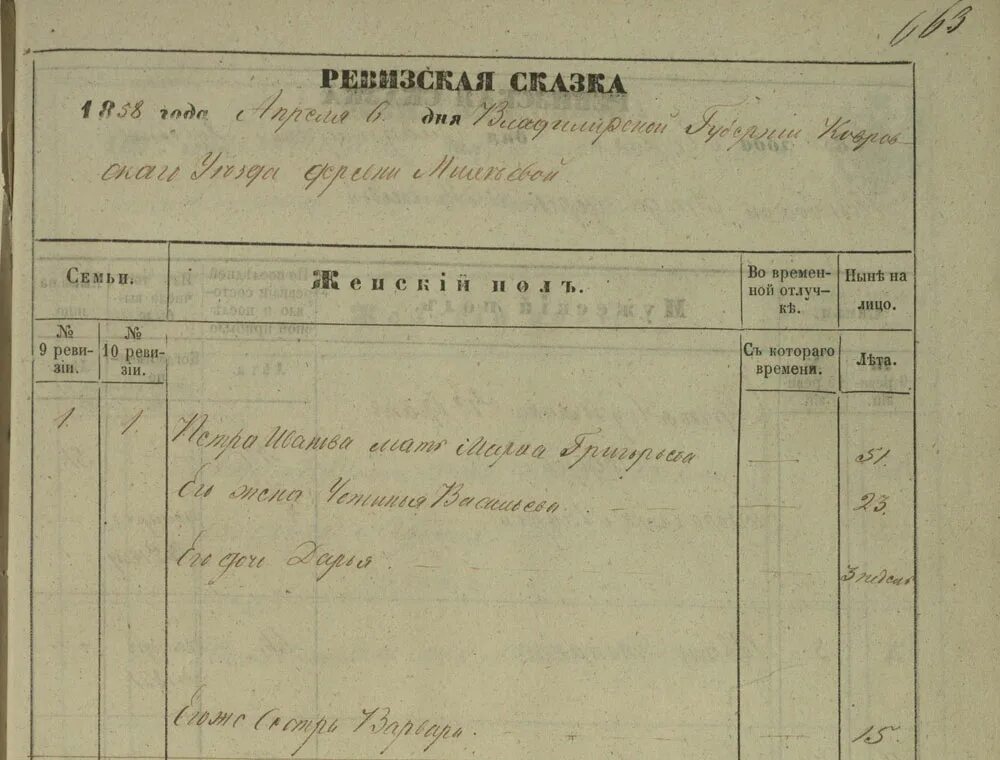 663
РЕВИЗСКАЯ СКАЗКА
1858 года Апреля 6 дня Владимирской Губерніи Ковров-
скаго Уѣзда деревни
Семьи.
Женскій полъ.
Во времен-
ной отлуч-
кѣ.
Нынѣ на
лицо.
№
9 реви-
зіи.
№
10 реви-
зіи.
Съ котораго
времени.
Лѣта.
1. 1. Петра Иванова мать Марѳа Григорьева 51.
Его жена Устинья Васильева 23.
Его дочь Дарья 3 недель
Егоже Сестра Варвара 15.